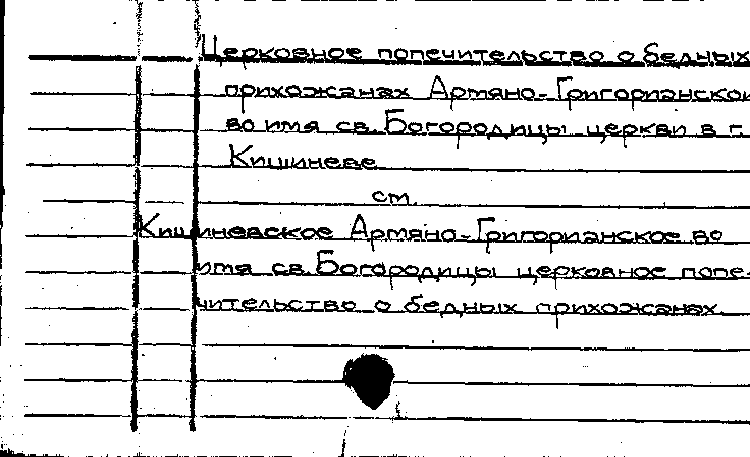 Церковное попечительство о бедных
прихожанах Армяно-Григорианской
во имя св. Богородицы церкви в г.
Кишиневе
см.
Кишиневское Армяно-Григорианское во
имя св. Богородицы церковное попе-
чительство о бедных прихожанах.